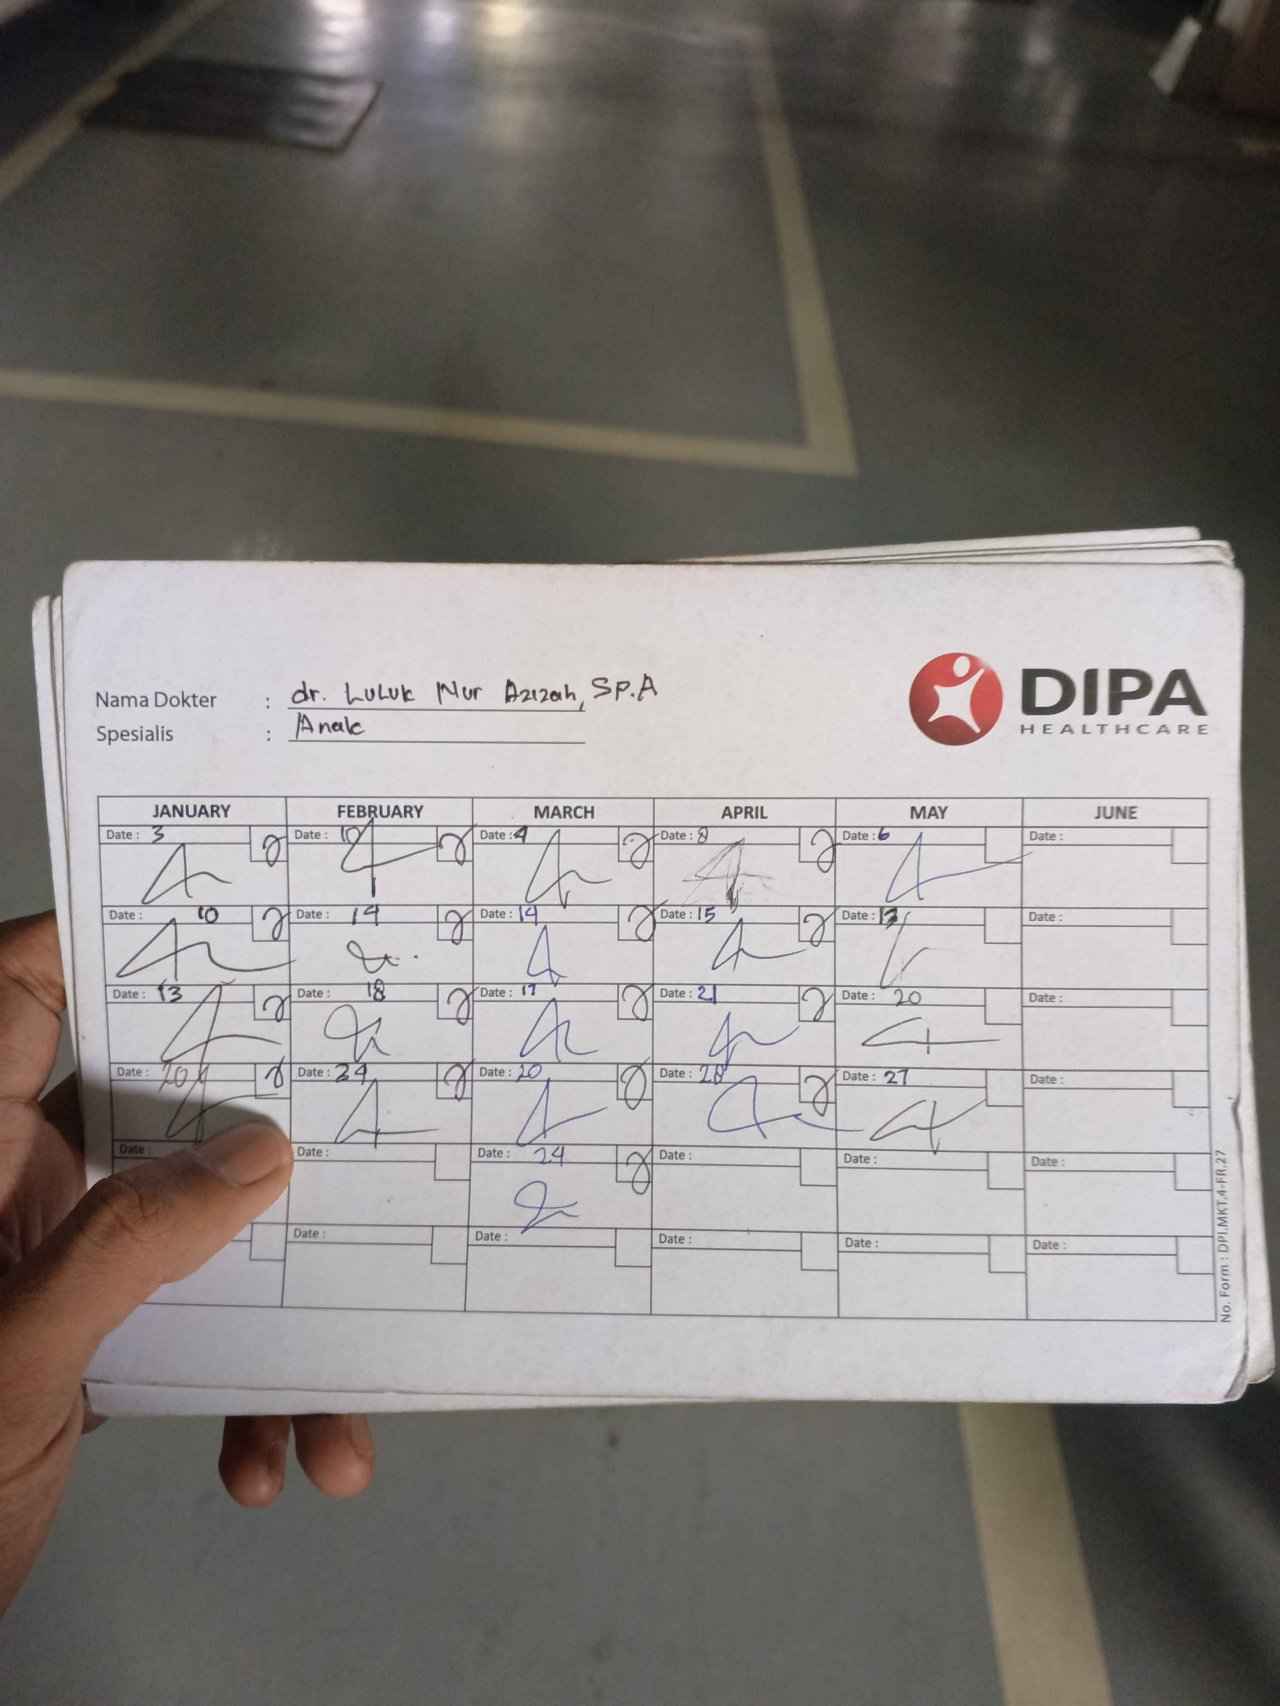 Nama Dokter : dr. Luluk Nur Azizah, SP.A
Spesialis : Anak
DIPA
HEALTHCARE
JANUARY FEBRUARY MARCH APRIL MAY JUNE
Date : 3 Date : 10 Date : 4 Date : 8 Date : 6 Date :
Date : 10 Date : 14 Date : 14 Date : 15 Date : 13 Date :
Date : 13 Date : 18 Date : 17 Date : 21 Date : 20 Date :
Date : 20 Date : 24 Date : 20 Date : 28 Date : 27 Date :
Date : Date : Date : 24 Date : Date : Date :
Date : Date : Date : Date : Date :
No. Form : DPI.MKT.4-FR.27